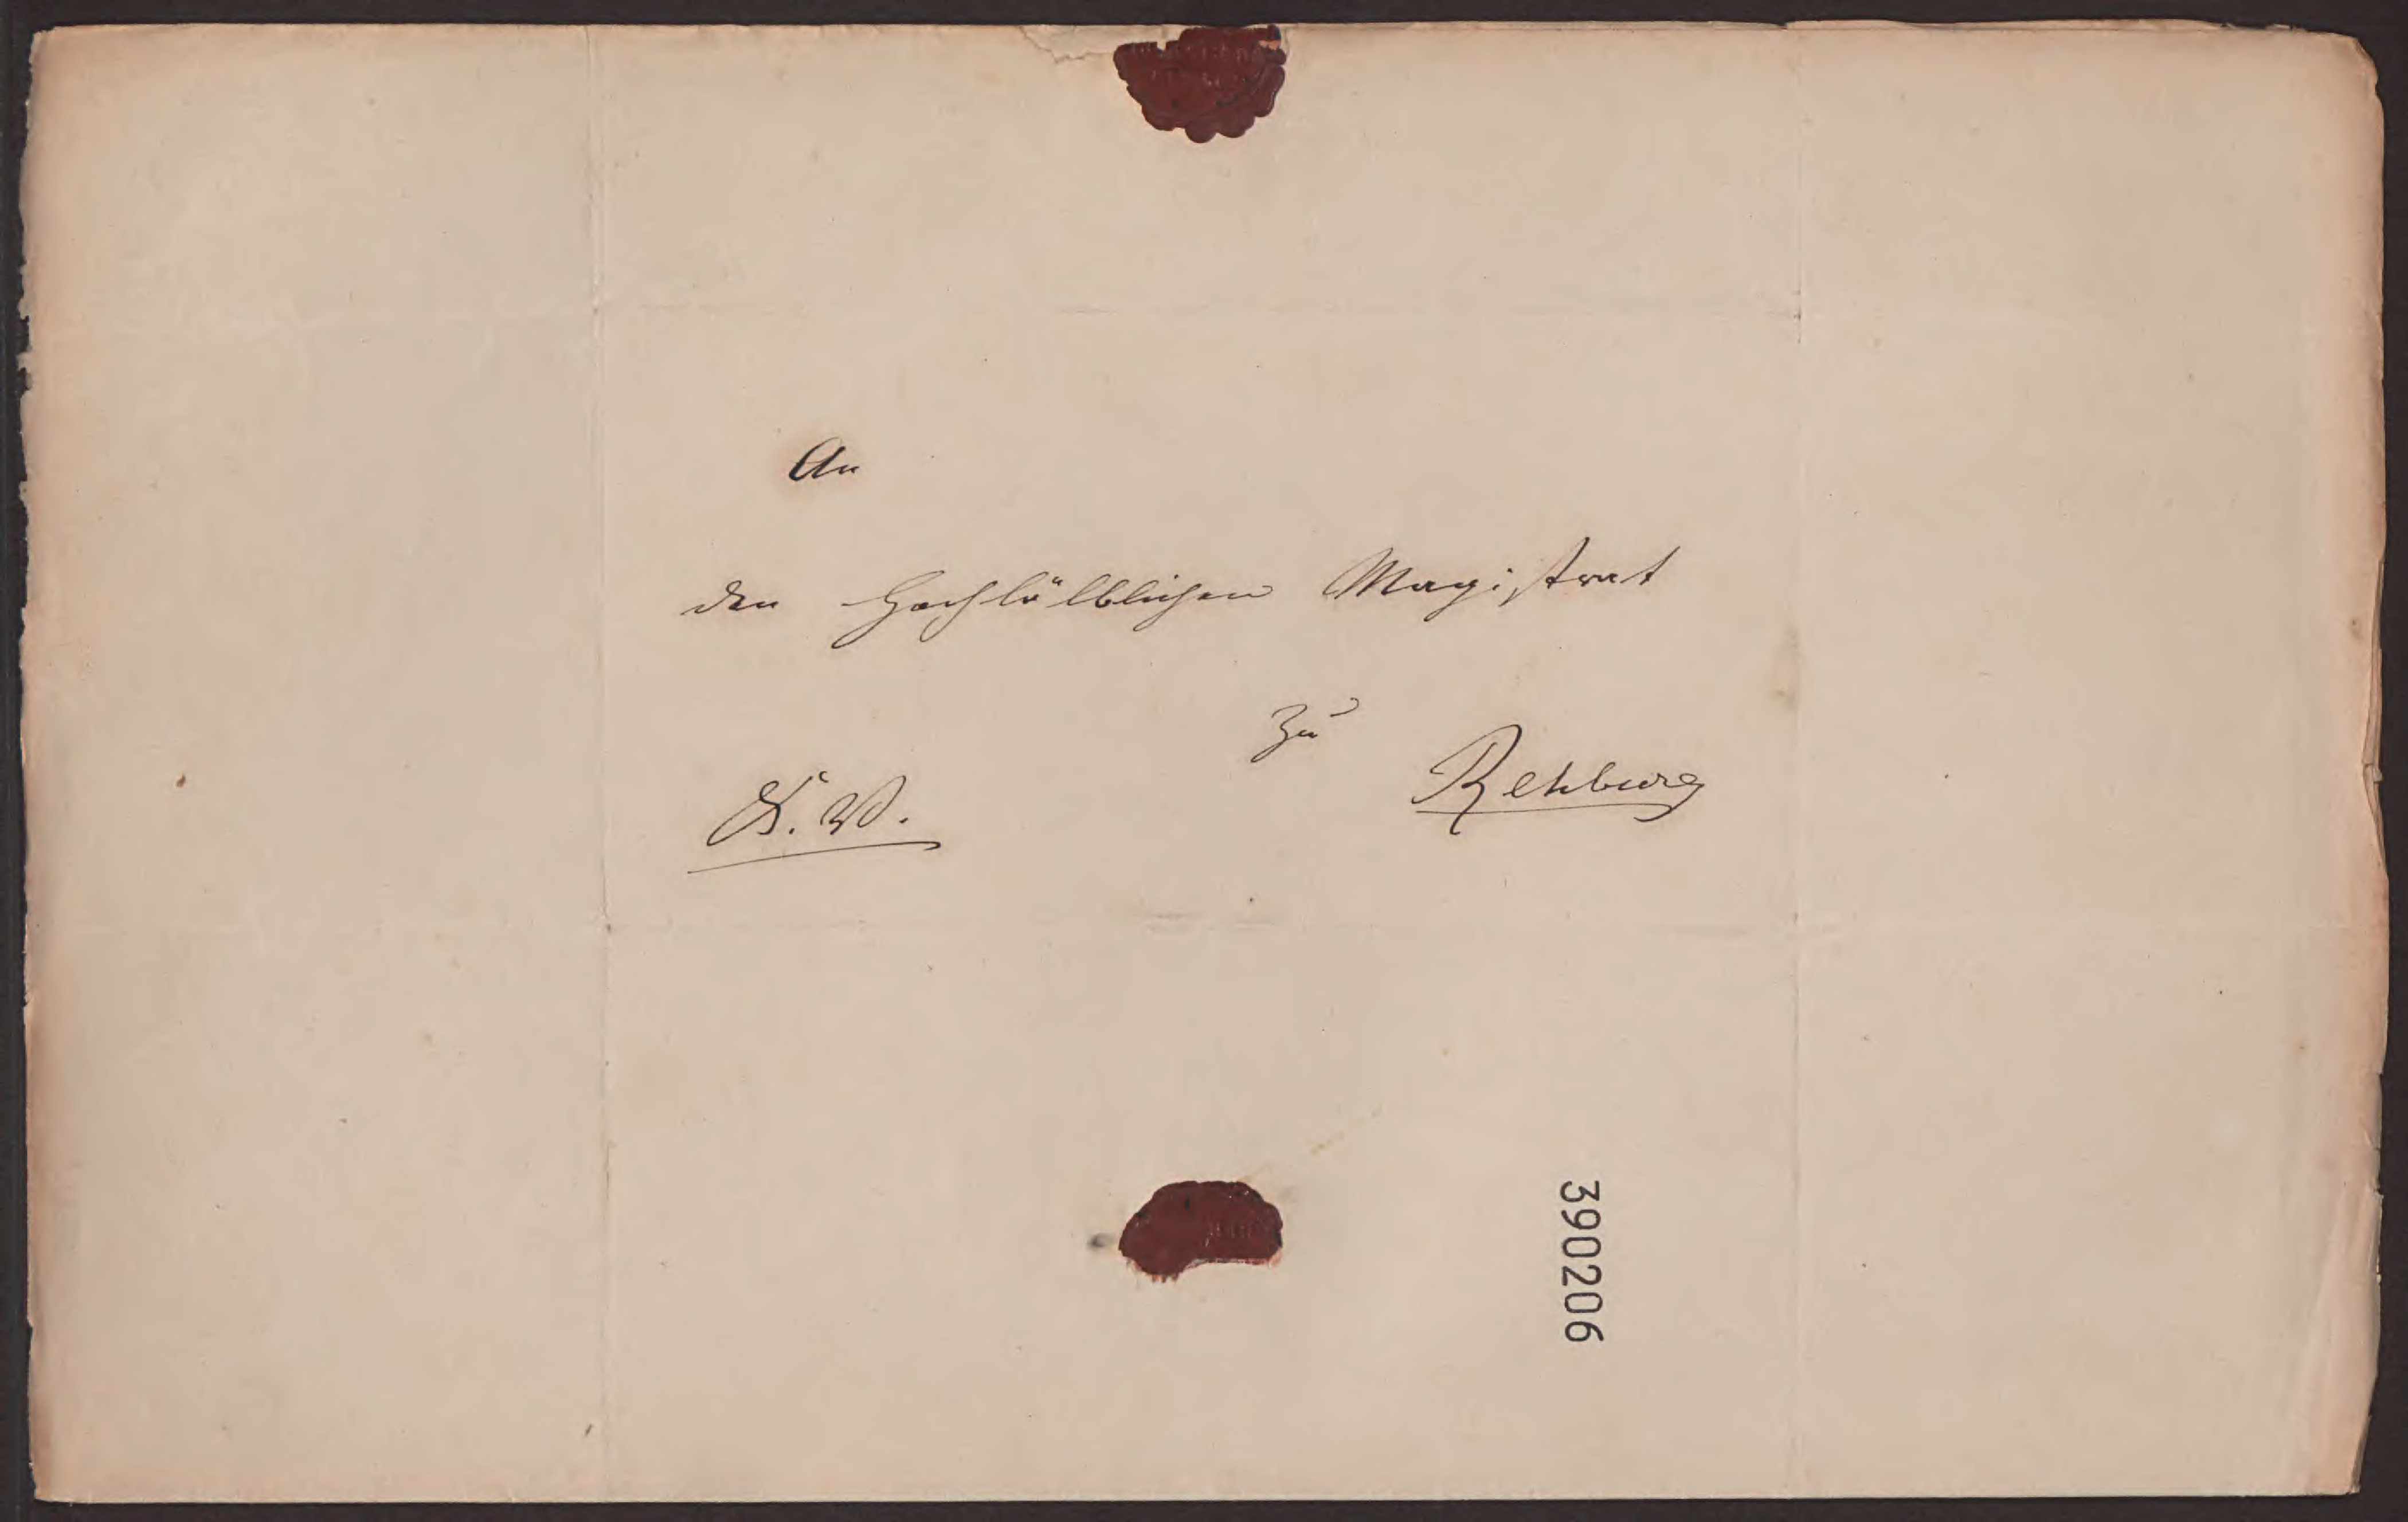 An
den Hochlölblichen Magistrat
zu
Rehburg
K. W.
390206